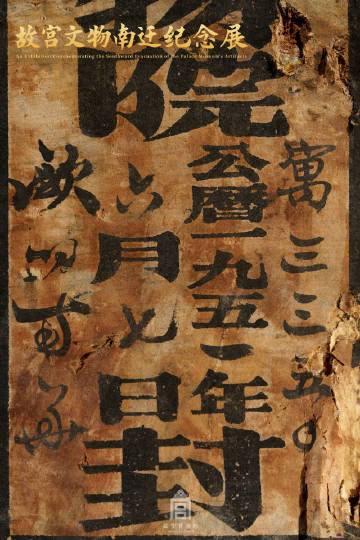 故宫文物南迁纪念展
An Exhibition Commemorating the Southward Evacuation of the Palace Museum's Artifacts
寓三三五〇
院
公曆一九五一年
六月七日
封
歐
故宫博物院